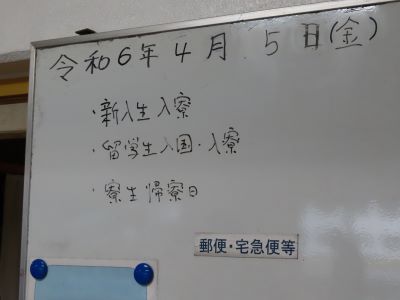 令和6年4月 5日(金)
・新入生入寮
・留学生入国・入寮
・寮生帰寮日
郵便・宅急便等